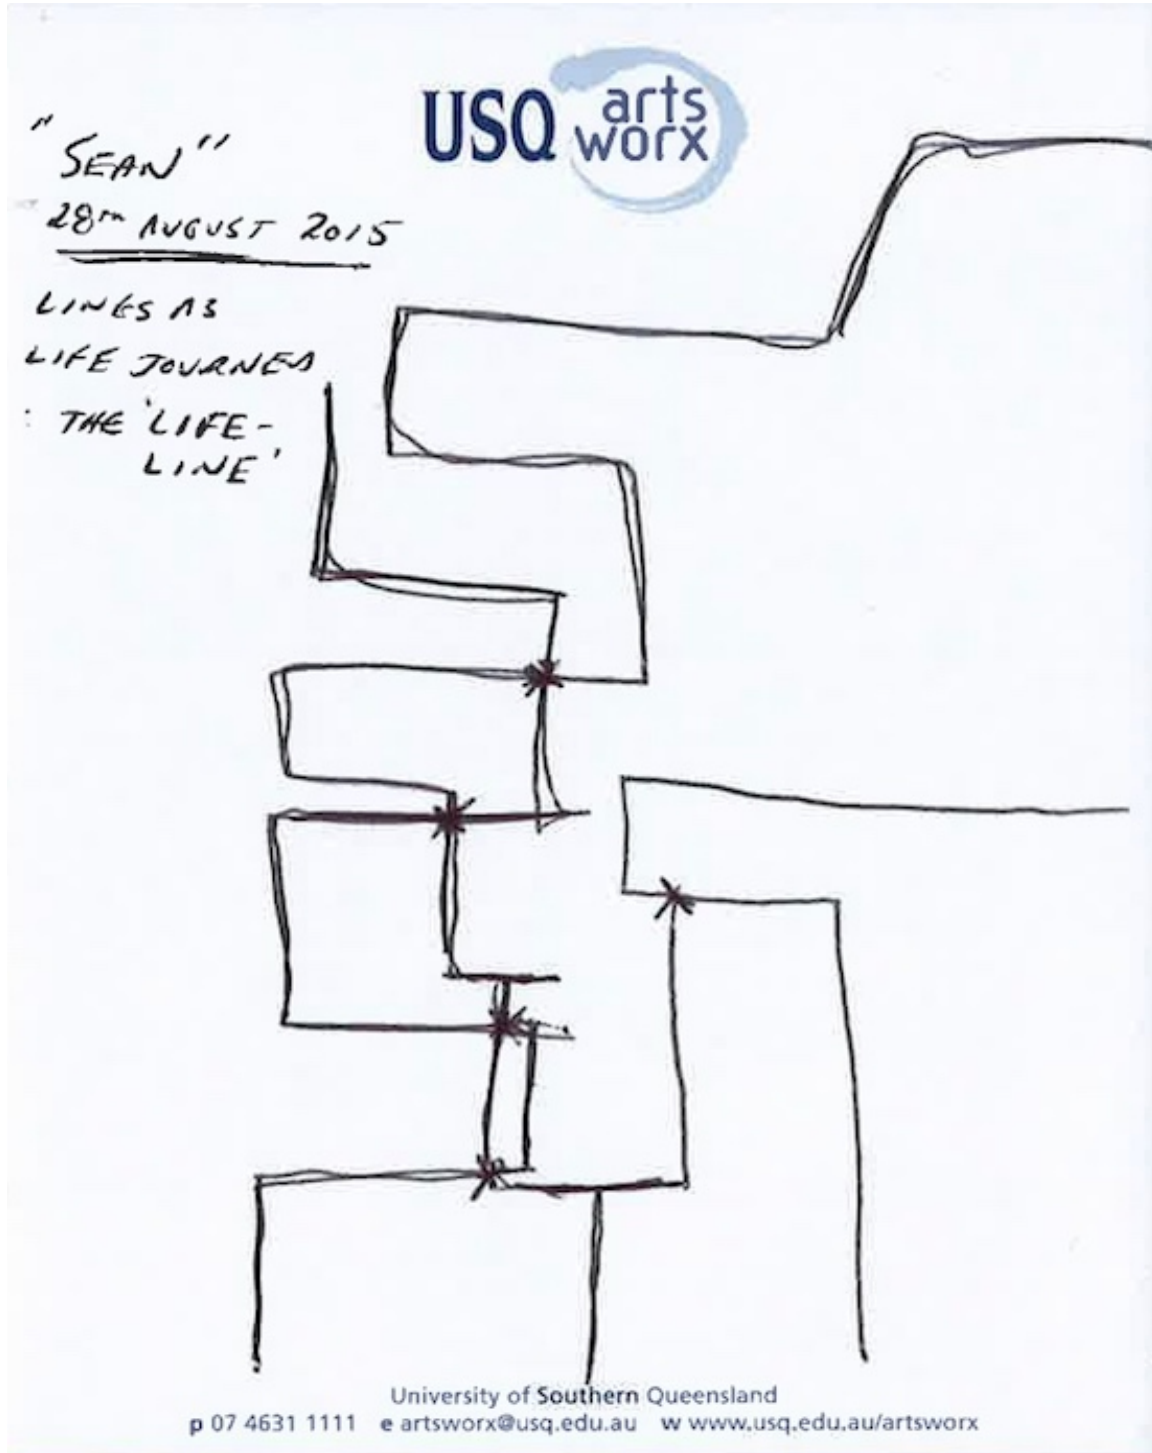 USQ arts
worx
"SEAN"
28TH AUGUST 2015
LINES AS
LIFE JOURNEY
: THE 'LIFE-
LINE'
University of Southern Queensland
p 07 4631 1111 e artsworx@usq.edu.au w www.usq.edu.au/artsworx